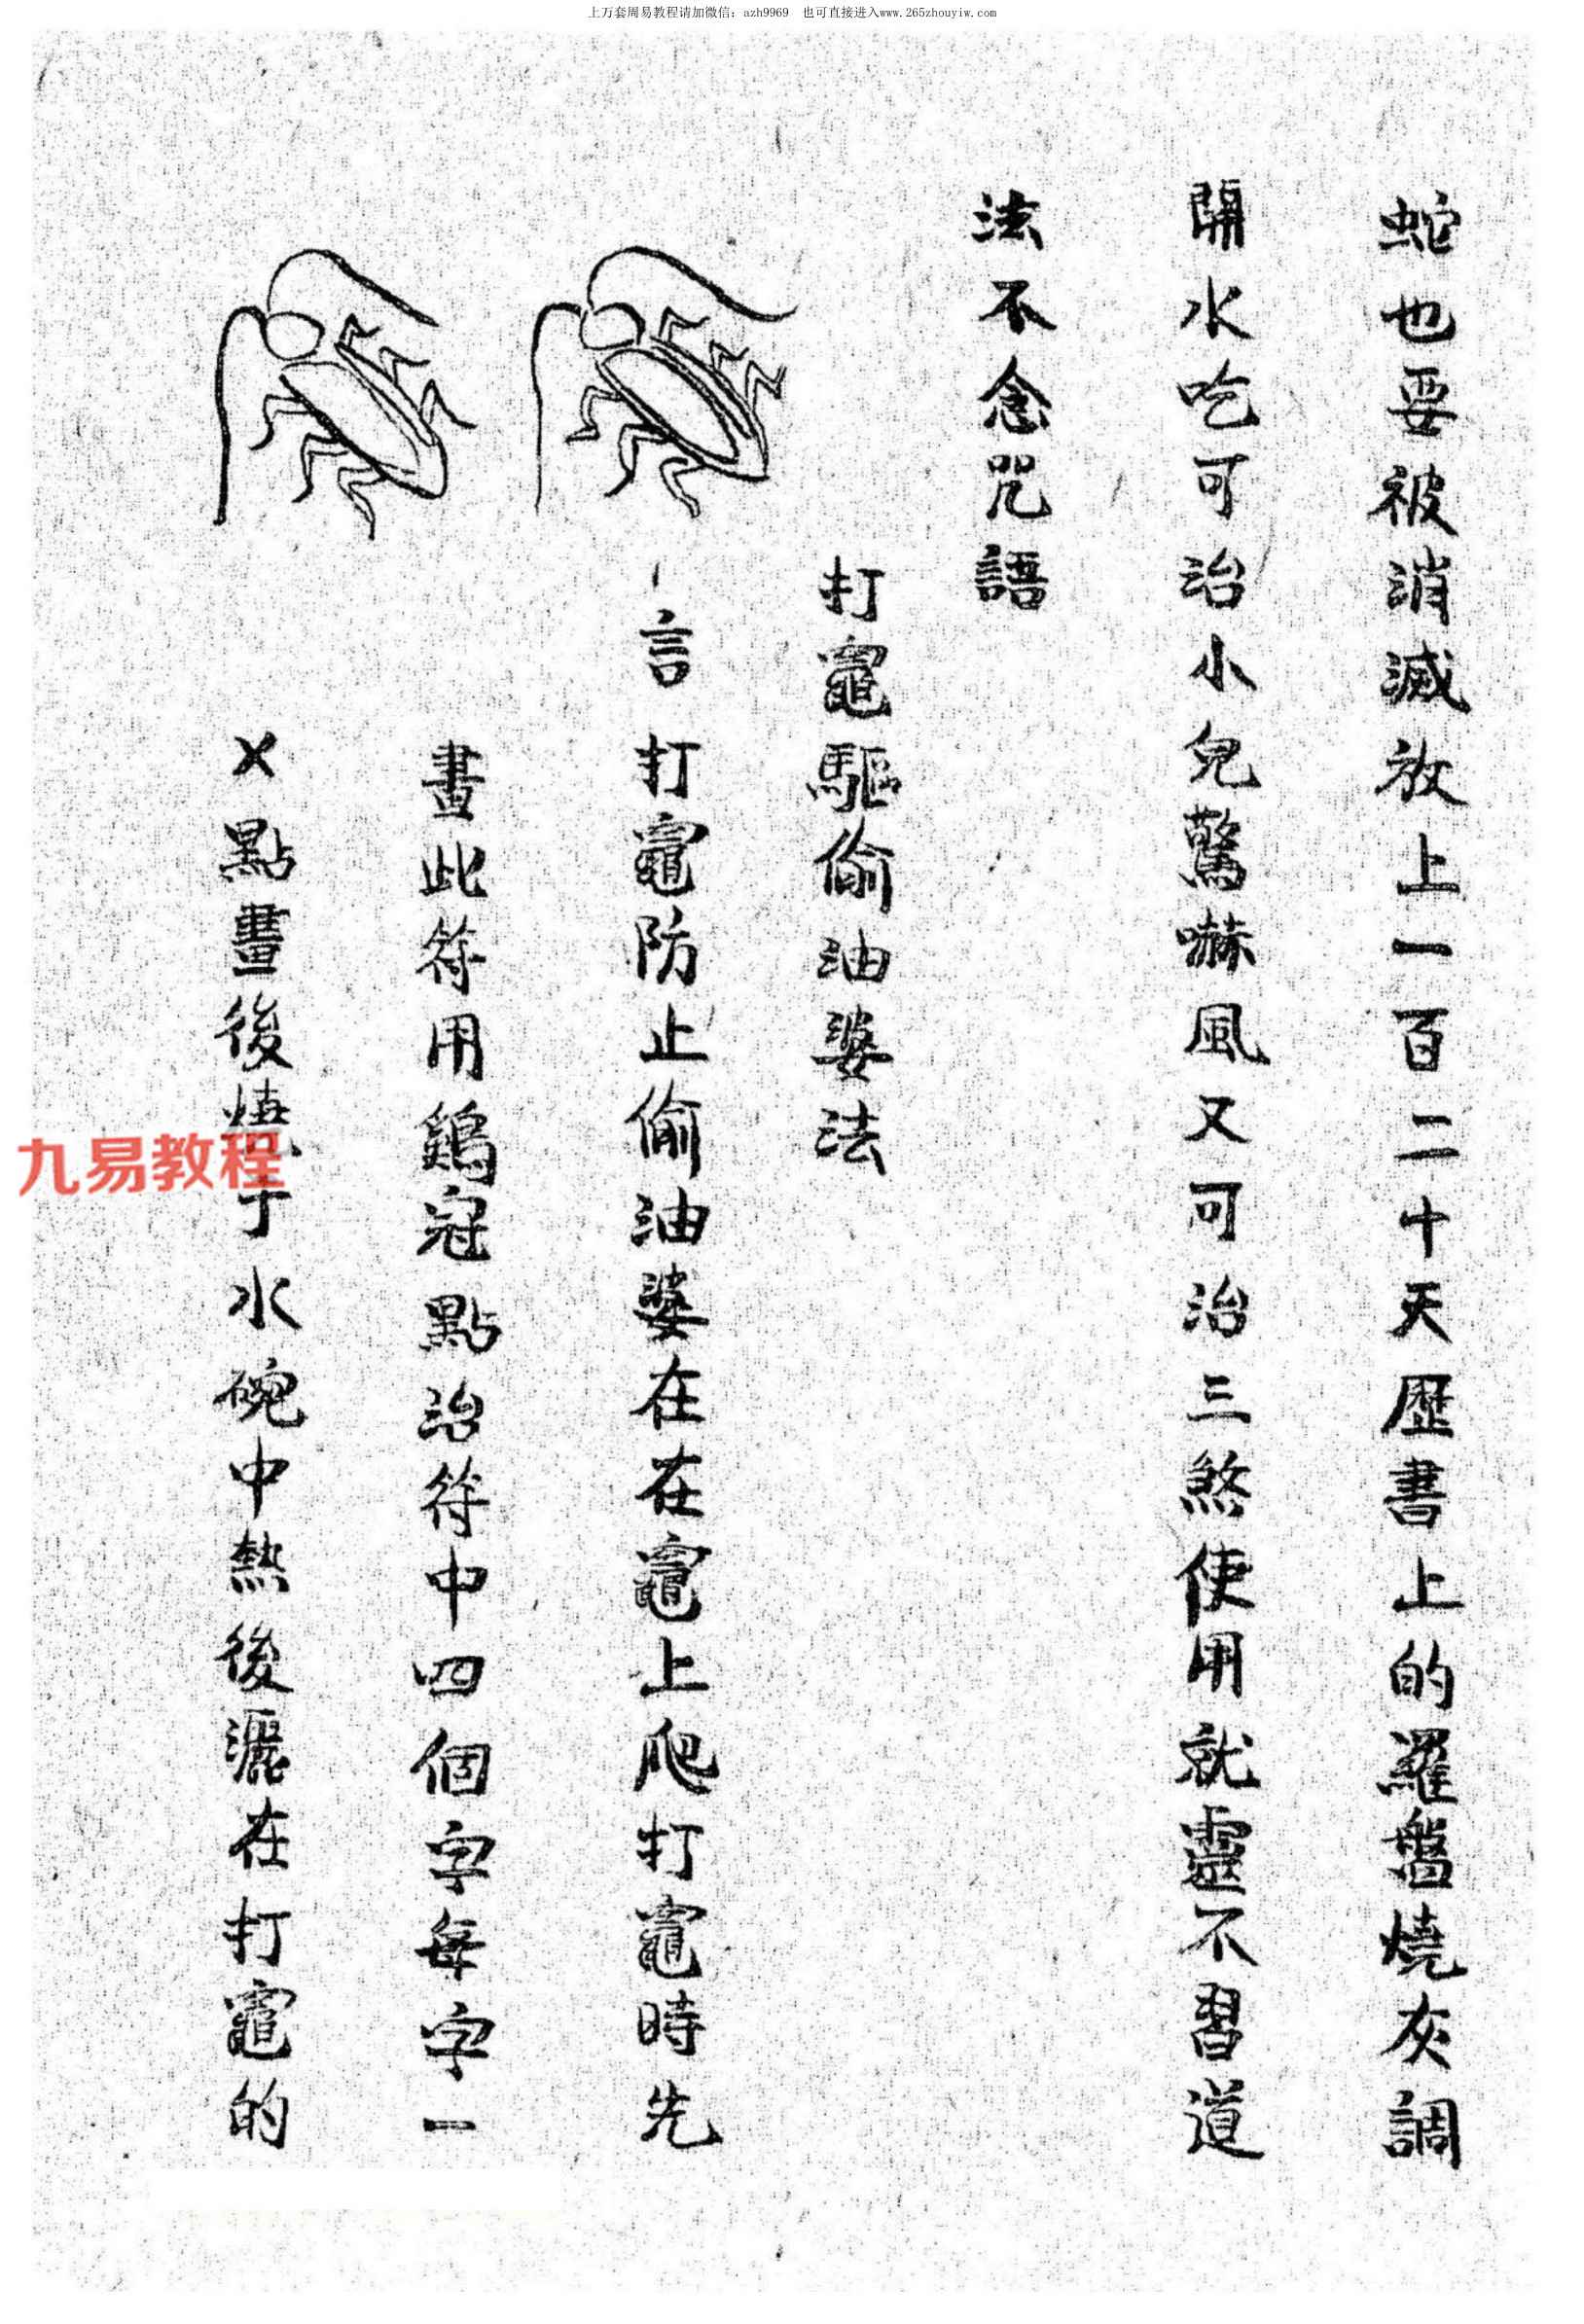 上万套周易教程请加微信：azh9969 也可直接进入www.265zhouyiw.com
蛇也要被消滅放上一百二十天歷書上的羅盤燒灰調
開水吃可治小兒驚嚇風又可治三煞使用就靈不習道
法不念咒語
打竈驅偷油婆法
言打竈防止偷油婆在在竈上爬打竈時先
畫此符用鷄冠點治符中四個字每字一
X點畫後燒于水碗中熱後灑在打竈的
九易教程